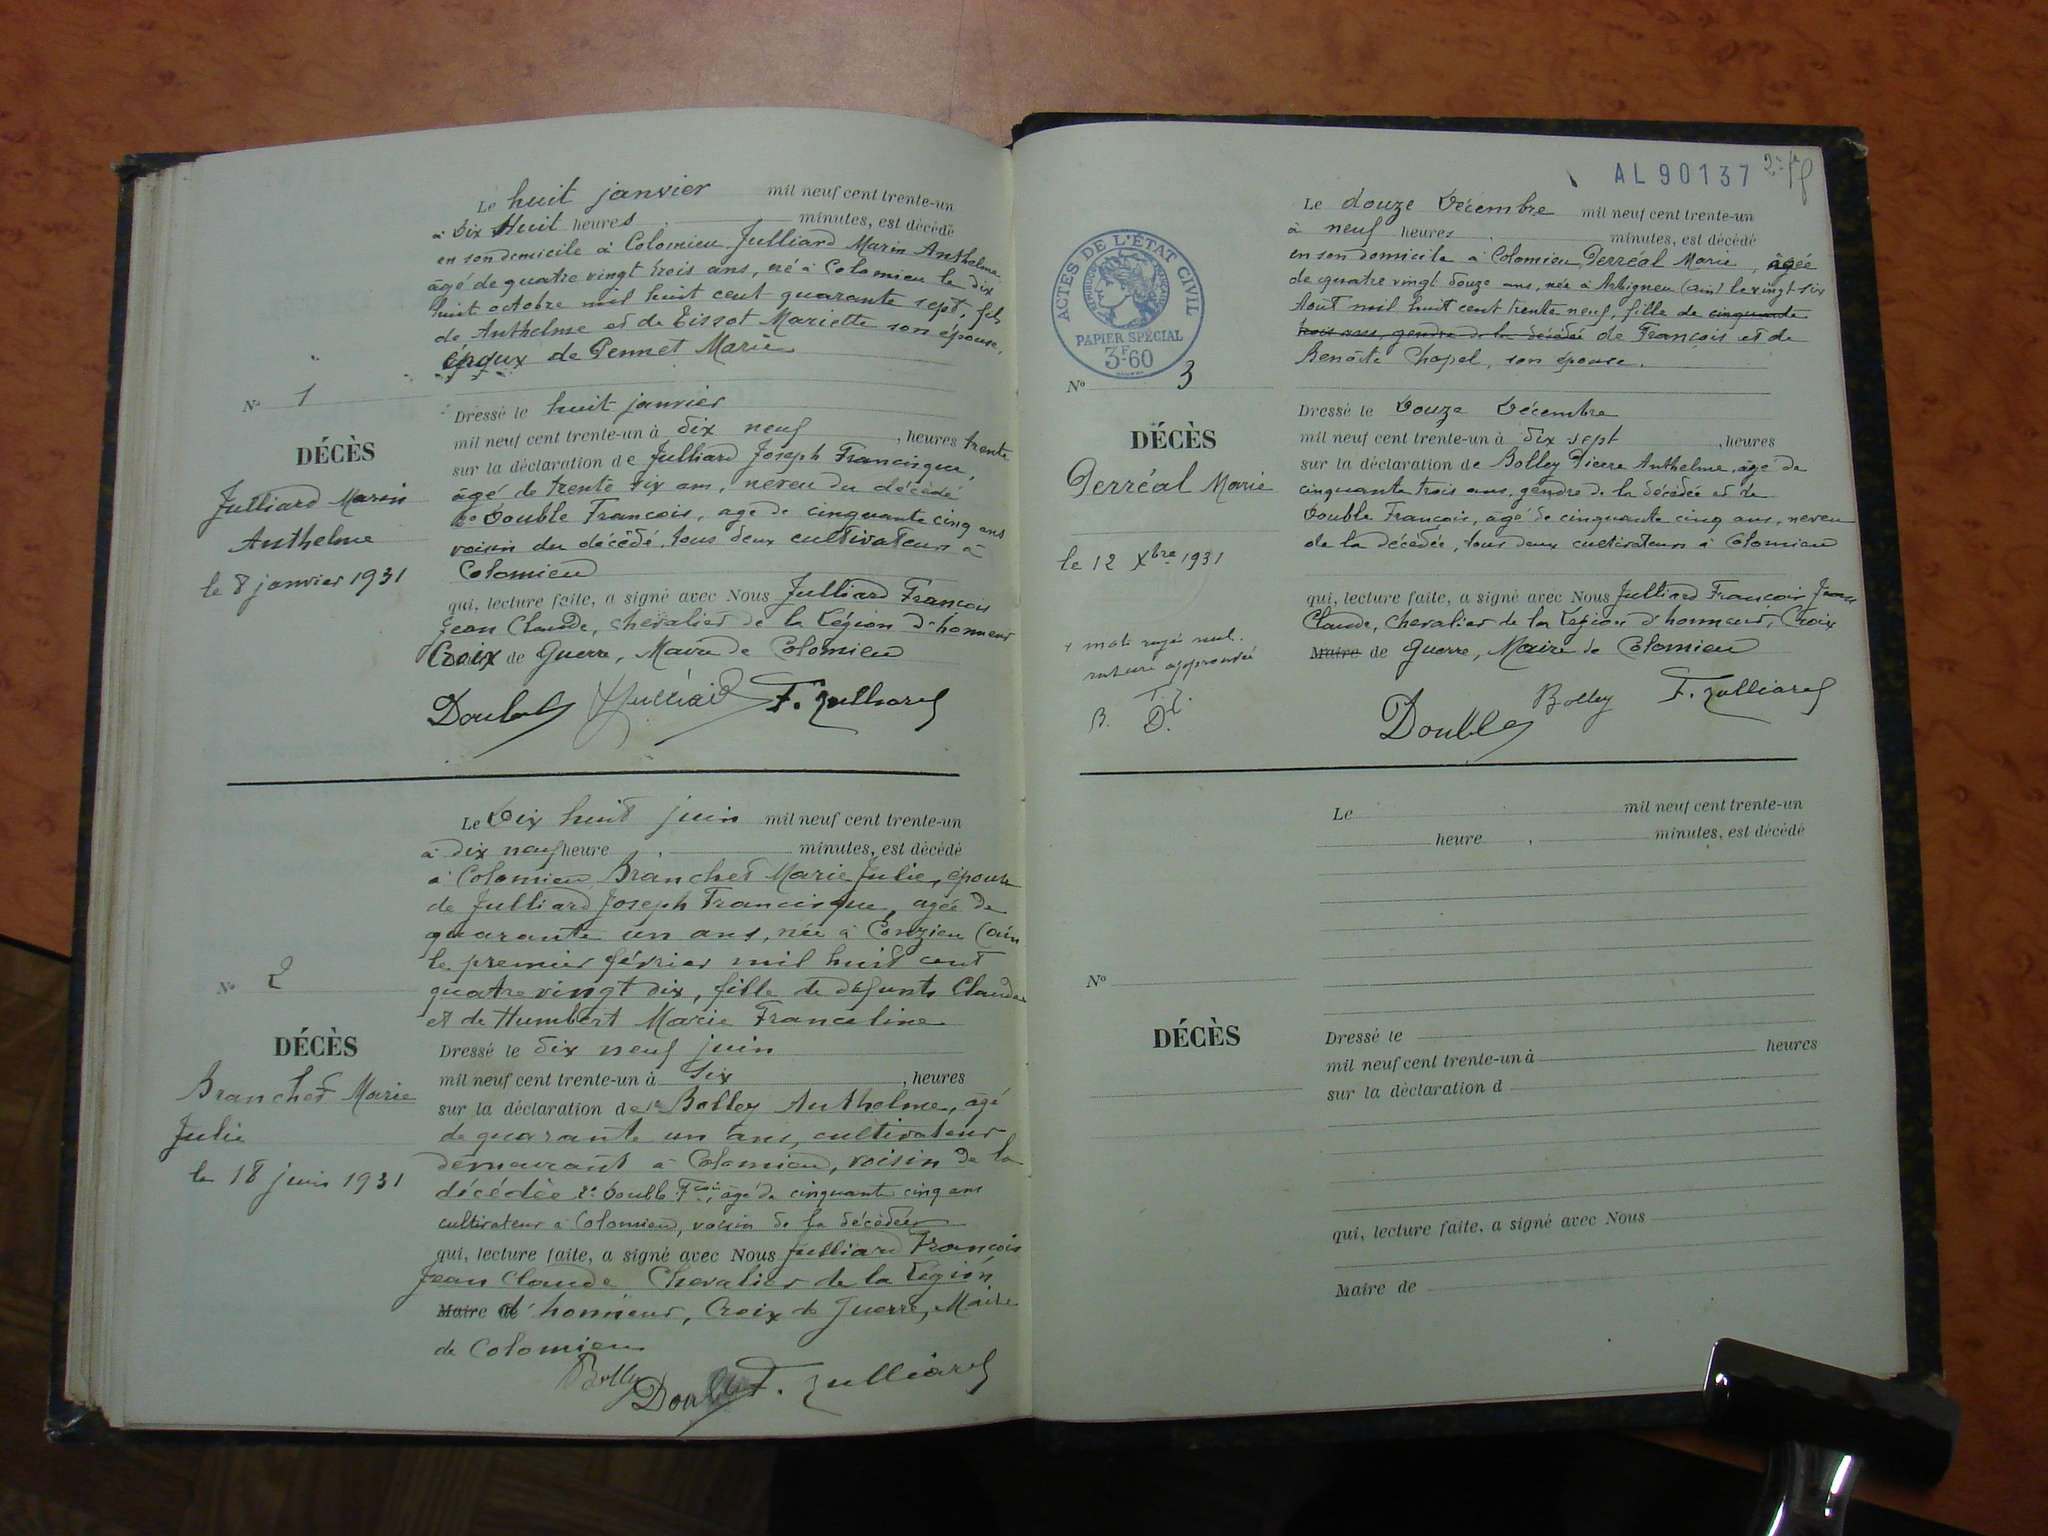 Le huit janvier mil neuf cent trente-un
à Dix Huit heures minutes, est décédé
en son domicile à Colomieu Julliard Marin Anthelme
âgé de quatre vingt trois ans, né à Colomieu le dix
huit octobre mil huit cent quarante sept, fils
de Anthelme et de Tissot Mariette son épouse,
époux de Pennet Marie
No 1
DÉCÈS
Julliard Marin
Anthelme
le 8 janvier 1931
Dressé le huit janvier
mil neuf cent trente-un à dix neuf, heures trente
sur la déclaration de Julliard Joseph Francisque,
âgé de trente six ans, neveu du décédé
Double François, age de cinquante cinq ans
voisin du décédé, tous deux cultivateurs à
Colomieu
qui, lecture faite, a signé avec Nous Julliard François
Jean Claude, chevalier de la Légion d'honneur
Croix de Guerre, Maire de Colomieu
Double Julliard F. Julliard
Le Dix huit juin mil neuf cent trente-un
à dix neuf heure , minutes, est décédé
à Colomieu Branchet Marie Julie, épouse
de Julliard Joseph Francisque, agée de
quarante un ans, née à Conzieu (ain
le premier février mil huit cent
quatre vingt dix, fille de défunts Claude
et de Humbert Marie Franceline
No 2
DÉCÈS
Branchet Marie
Julie
le 18 juin 1931
Dressé le dix neuf juin
mil neuf cent trente-un à Six , heures
sur la déclaration de Bolley Anthelme, âgé
de quarante un ans, cultivateur
demeurant à Colomieu, voisin de la
décédée 2e Double Fçois, âgé de cinquante cinq ans
cultivateur à Colomieu, voisin de la décédée
qui, lecture faite, a signé avec Nous Julliard François
Jean Claude Chevalier de la Légion
Maire de d'honneur, Croix de Guerre, Maire
de Colomieu
Bolley Double F. Julliard
AL90137
ACTES DE L'ÉTAT CIVIL
PAPIER SPÉCIAL
3F60
Le douze Décembre mil neuf cent trente-un
à neuf heures minutes, est décédé
en son domicile à Colomieu Perréal Marie, agée
de quatre vingt douze ans, née à Arbigneu (ain) le vingt six
Août mil huit cent trente neuf, fille de cinquante
trois ans, gendre de la décédée de François et de
Benoîte Chapel, son épouse.
No 3
DÉCÈS
Perréal Marie
le 12 Xbre 1931
mots rayés nul.
rature approuvée
B. D.
Dressé le Douze Décembre
mil neuf cent trente-un à dix sept , heures
sur la déclaration de Bolley Pierre Anthelme, âgé de
cinquante trois ans, gendre de la décédée et de
Double François, âgé de cinquante cinq ans, neveu
de la décédée, tous deux cultivateurs à Colomieu
qui, lecture faite, a signé avec Nous Julliard François Jean
Claude, Chevalier de la Légion d'honneur, Croix
Maire de Guerre, Maire de Colomieu
Double Bolley F. Julliard
Le mil neuf cent trente-un
heure , minutes, est décédé
No
DÉCÈS
Dressé le
mil neuf cent trente-un à heures
sur la déclaration d
qui, lecture faite, a signé avec Nous
Maire de